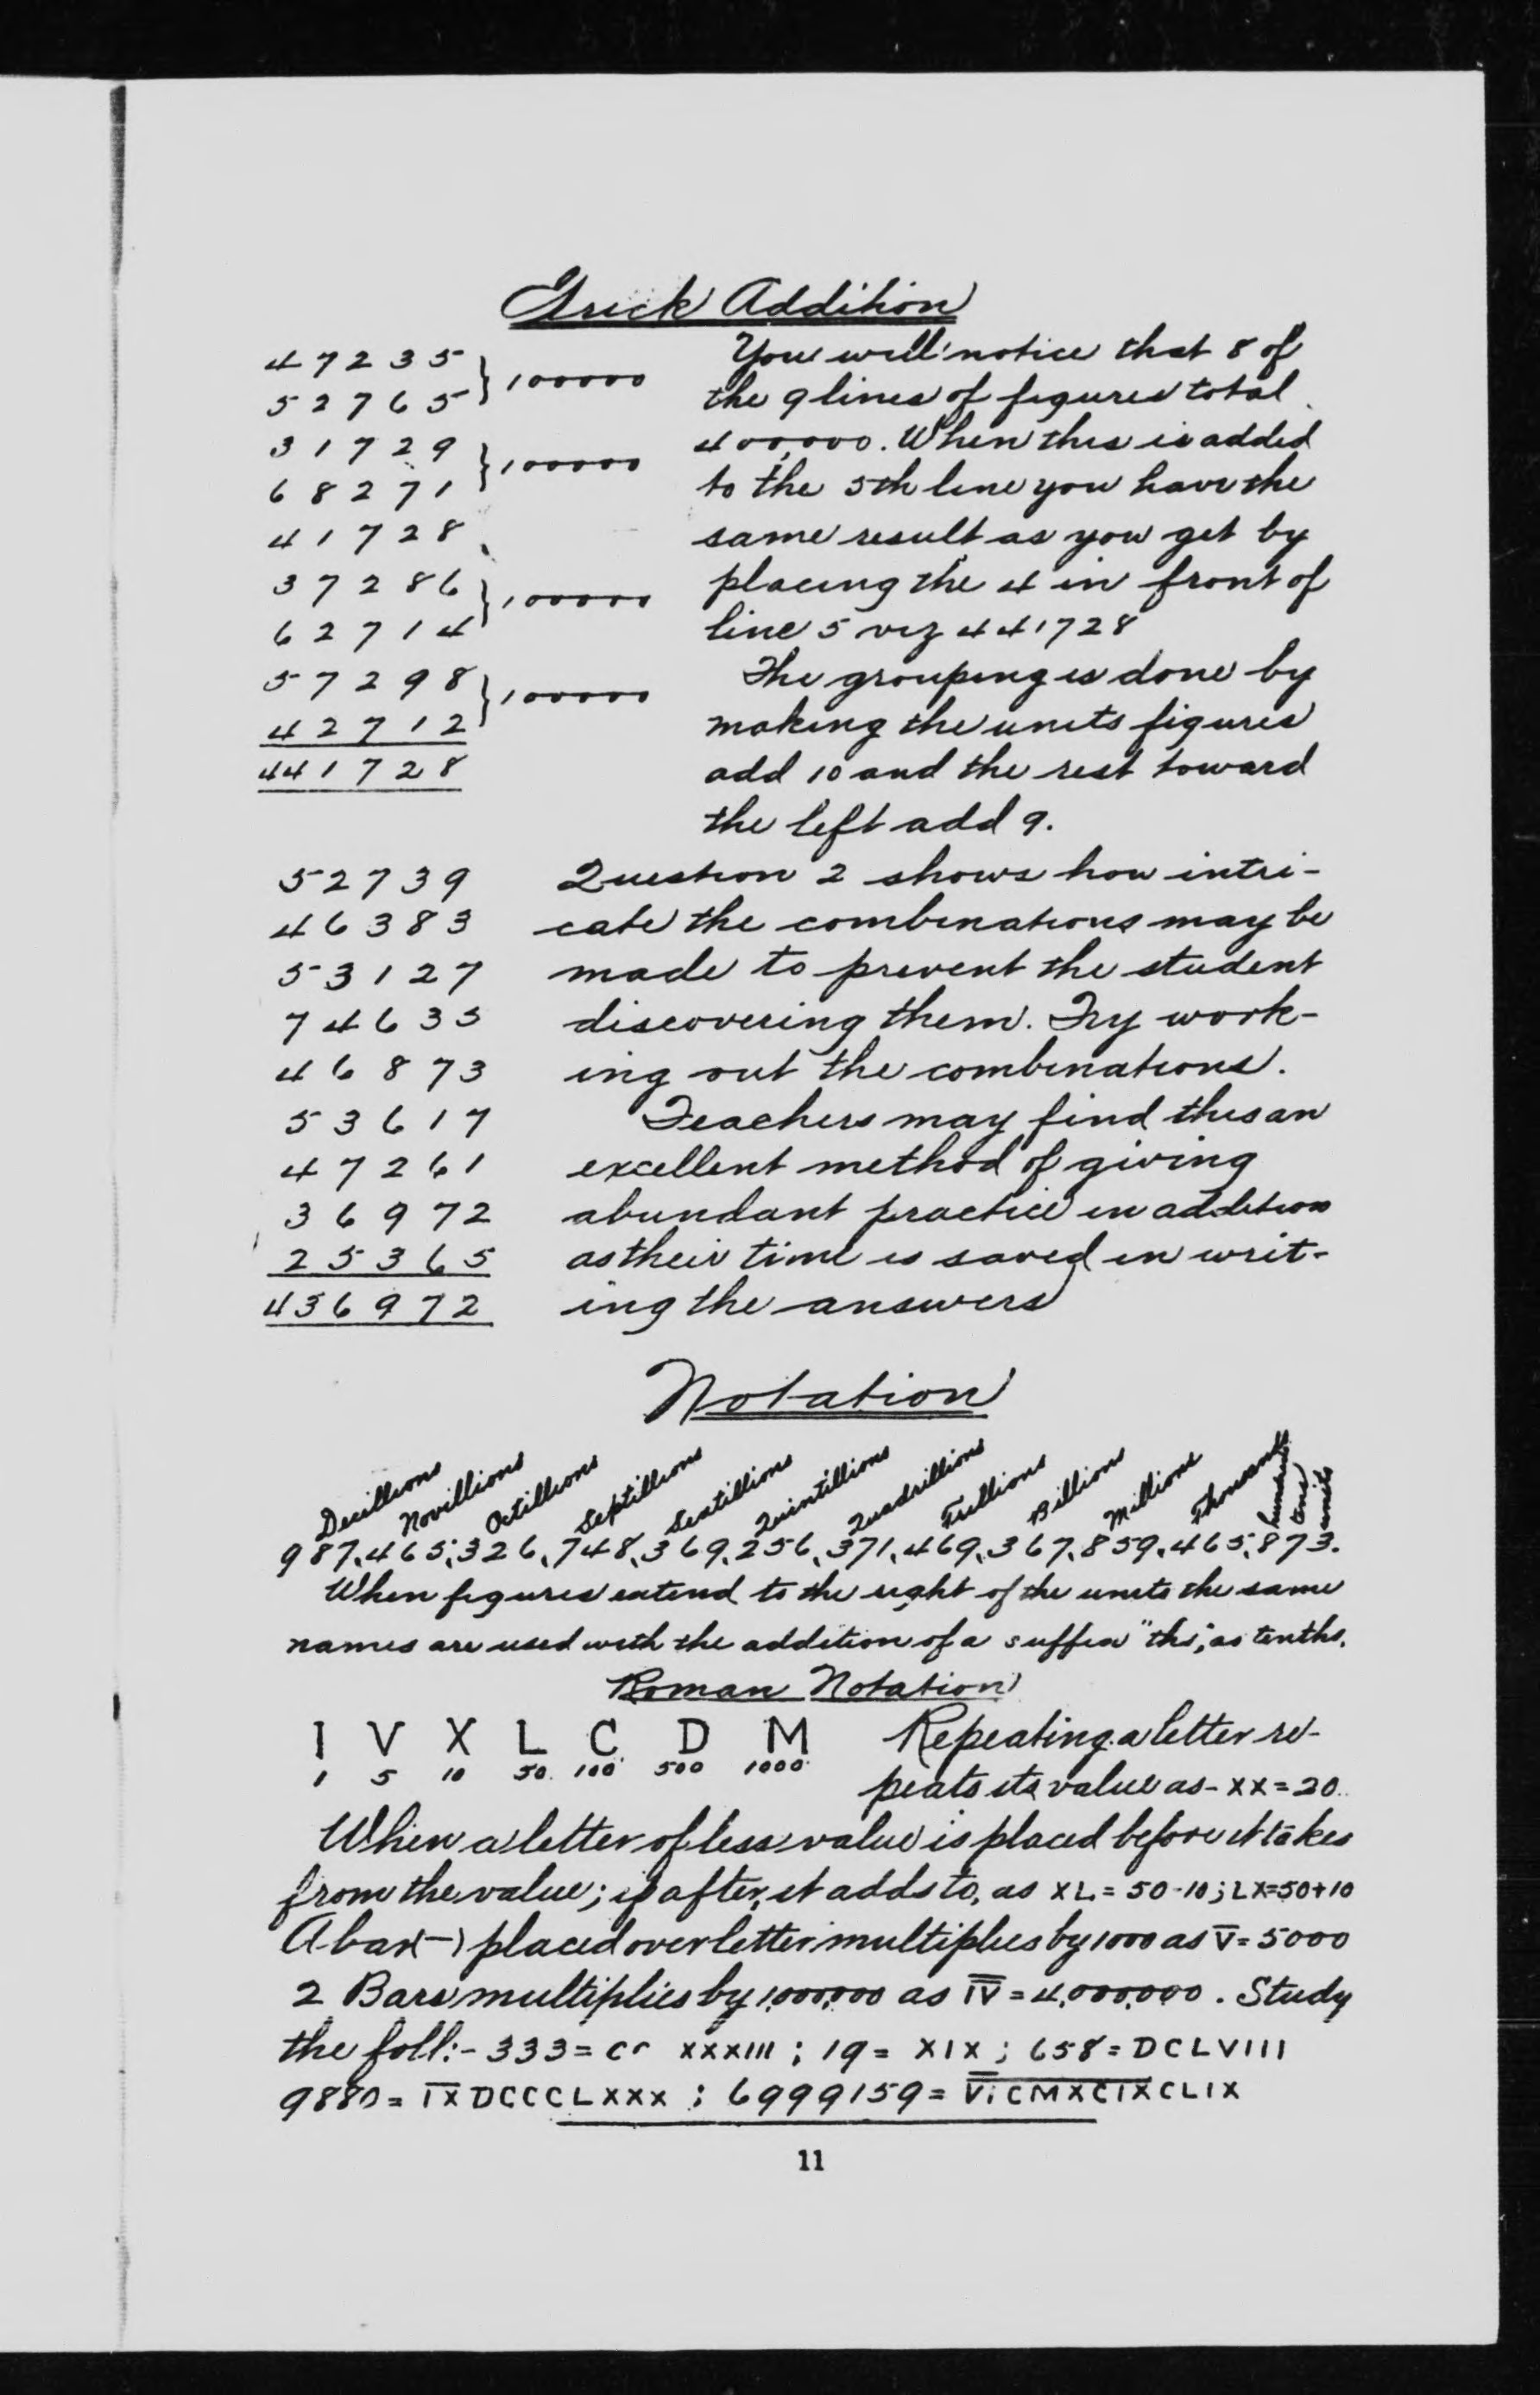 Trick Addition
47235 } 100000
52765
31729 } 100000
68271
41728
37286 } 100000
62714
57298 } 100000
42712
441728
You will notice that 8 of
the 9 lines of figures total
400,000. When this is added
to the 5th line you have the
same result as you get by
placing the 4 in front of
line 5 viz 441728
The grouping is done by
making the units figures
add 10 and the rest toward
the left add 9.
52739
46383
53127
74635
46873
53617
47261
36972
25365
436972
Question 2 shows how intri-
cate the combinations may be
made to prevent the student
discovering them. Try work-
ing out the combinations.
Teachers may find this an
excellent method of giving
abundant practice in addition
as their time is saved in writ-
ing the answers
Notation
Decillions Novillions Octillions Septillions Sextillions Quintillions Quadrillions Trillions Billions Millions Thousands hundreds tens units
987,465,326,748,369,256,371,469,367,859,465,873.
When figures extend to the right of the units the same
names are used with the addition of a suffix "ths", as tenths.
Roman Notation
I V X L C D M
1 5 10 50 100 500 1000
Repeating a letter re-
peats its value as - XX = 20
When a letter of less value is placed before it takes
from the value; if after, it adds to, as XL = 50-10; LX=50+10
A bar (—) placed over letter multiplies by 1000 as V̅ = 5000
2 Bars multiplies by 1,000,000 as I̿V̿ = 4,000,000. Study
the foll:- 333 = CC XXXIII; 19 = XIX; 658 = DCLVIII
9880 = I̅X̅DCCCLXXX; 6999159 = V̿I̿C̅M̅X̅C̅I̅X̅CLIX
11